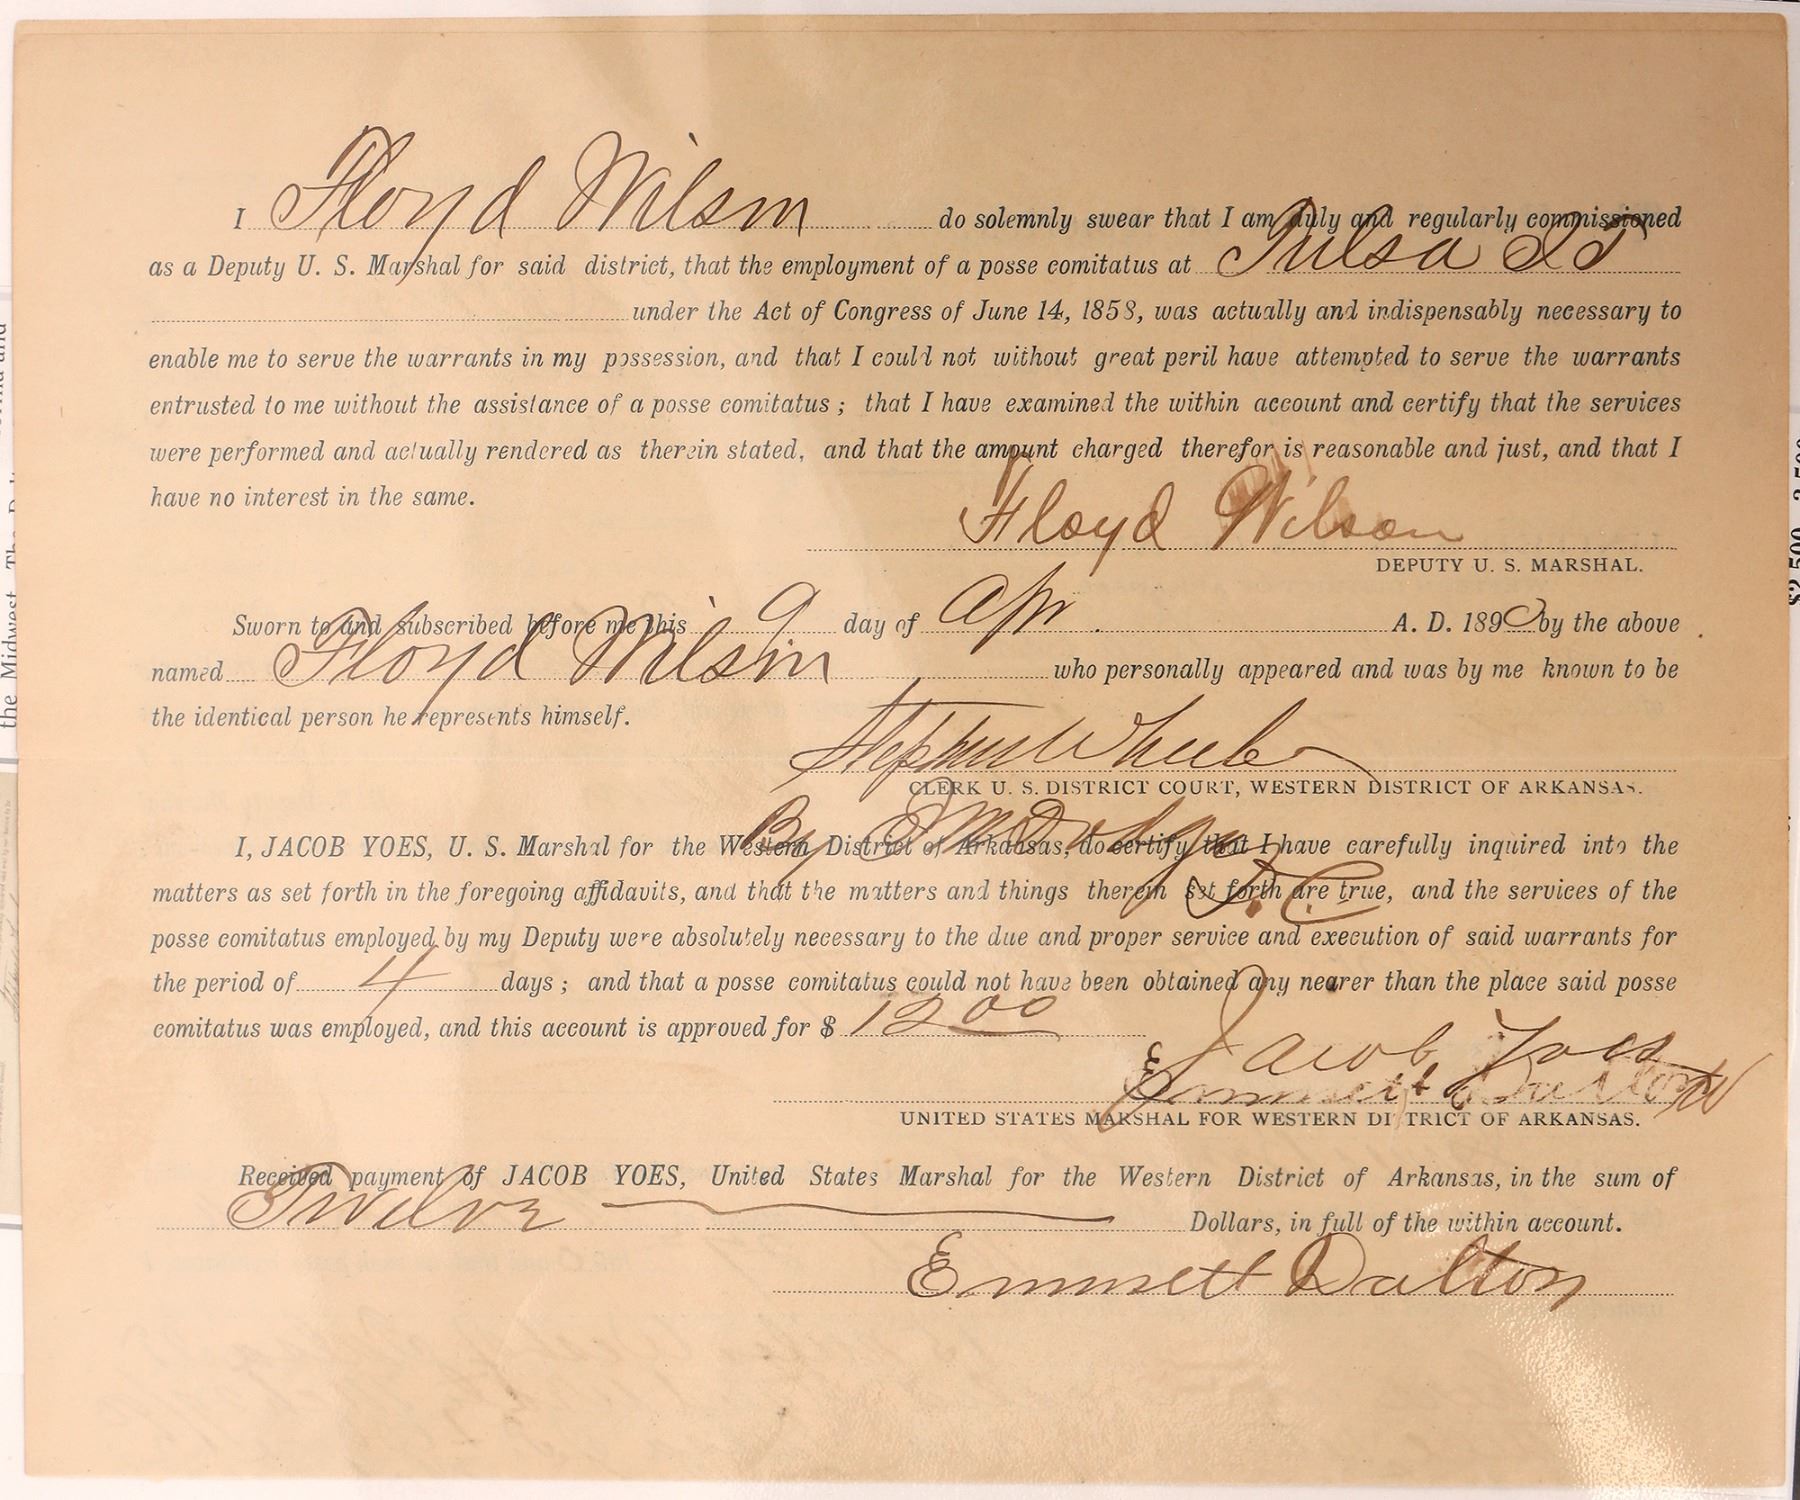 I Floyd Wilson do solemnly swear that I am duly and regularly commissioned
as a Deputy U. S. Marshal for said district, that the employment of a posse comitatus at Tulsa I T
under the Act of Congress of June 14, 1858, was actually and indispensably necessary to
enable me to serve the warrants in my possession, and that I could not without great peril have attempted to serve the warrants
entrusted to me without the assistance of a posse comitatus ; that I have examined the within account and certify that the services
were performed and actually rendered as therein stated, and that the amount charged therefor is reasonable and just, and that I
have no interest in the same.
Floyd Wilson
DEPUTY U. S. MARSHAL.
Sworn to and subscribed before me this 9 day of Apr A. D. 1890 by the above
named Floyd Wilson who personally appeared and was by me known to be
the identical person he represents himself.
Stephen Wheeler
CLERK U. S. DISTRICT COURT, WESTERN DISTRICT OF ARKANSAS.
By Dodge
D. C.
I, JACOB YOES, U. S. Marshal for the Western District of Arkansas, do certify that I have carefully inquired into the
matters as set forth in the foregoing affidavits, and that the matters and things therein set forth are true, and the services of the
posse comitatus employed by my Deputy were absolutely necessary to the due and proper service and execution of said warrants for
the period of 4 days ; and that a posse comitatus could not have been obtained any nearer than the place said posse
comitatus was employed, and this account is approved for $ 12 00
Jacob Yoes
Emmett Dalton
UNITED STATES MARSHAL FOR WESTERN DISTRICT OF ARKANSAS.
Received payment of JACOB YOES, United States Marshal for the Western District of Arkansas, in the sum of
Twelve Dollars, in full of the within account.
Emmett Dalton
the Midwest
$2,500